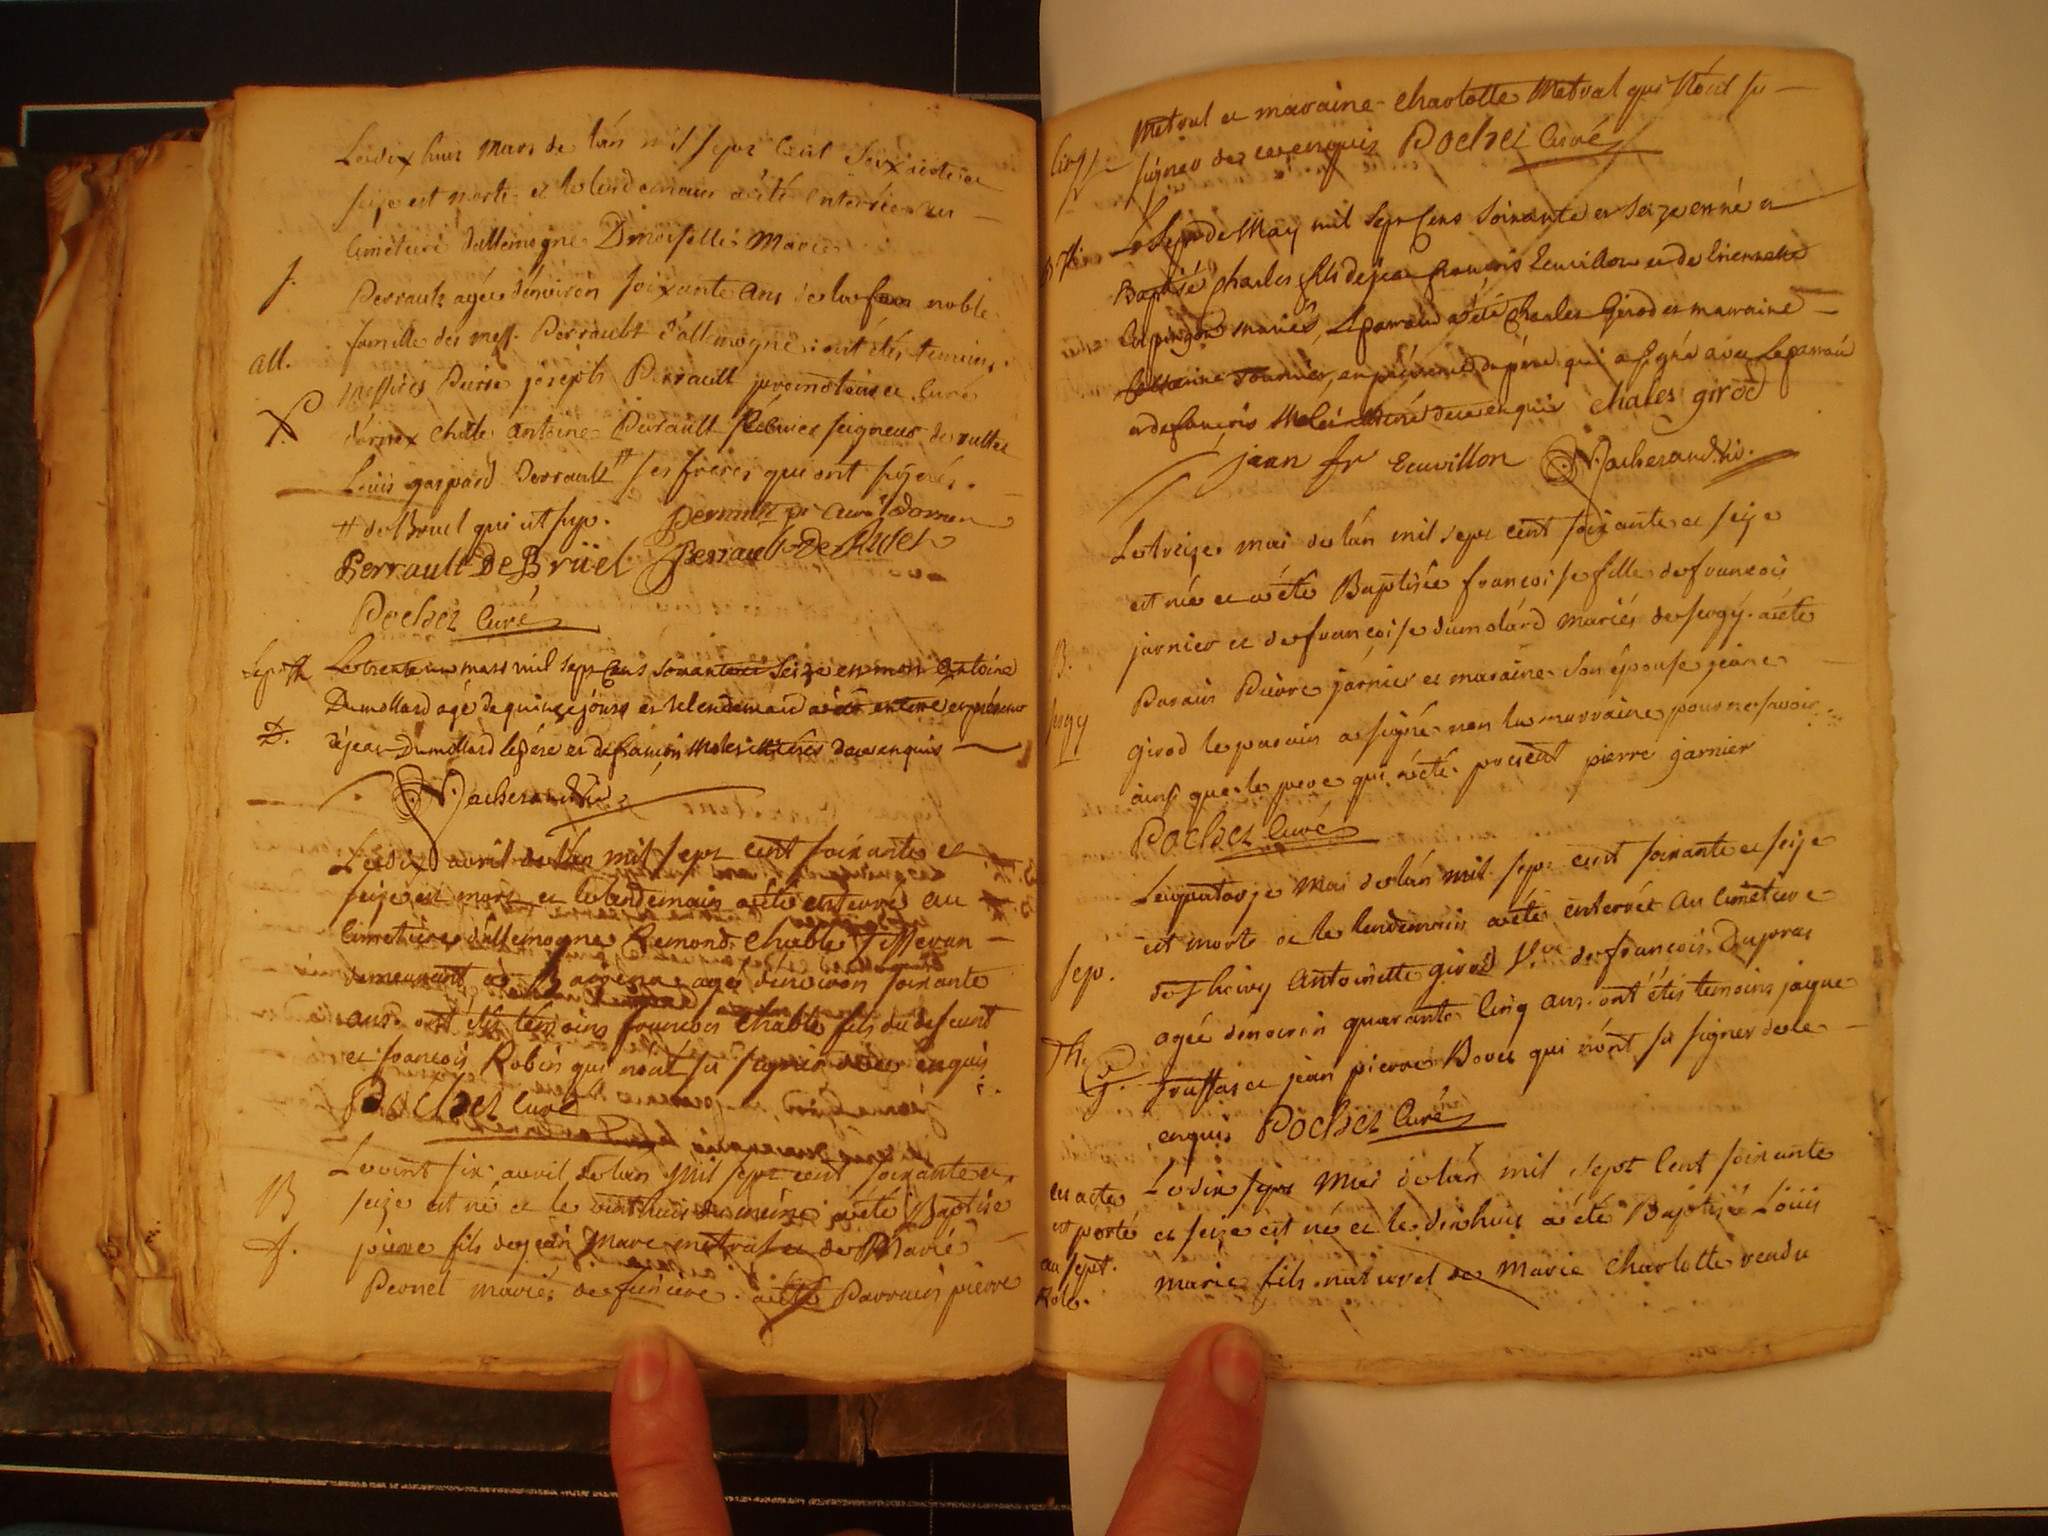 Le dix huit Mars de l'án mil sept cent soixante et
seize est morte et le lendemain a été enterrée au
Cimetiere d'allemogne Dmoiselle Marie
f.
Perrault agée d'énviron soixante ans de la noble
famille des mess. Perrault d'allemogne. ont étés temoins,
all.
Messires Pierre joseph Perrault curé
d'ornex antoine Perrault seigneur de rutets
Louis gaspard Perrault # ses freres qui ont signés.
# de Bruel qui est sup. Perrault pr Curé d'ornex
Perrault De Brüel Perrault De Rutets
Pochet Curé
Sepre Le trente un mars mil sept Cens soixante et Seize est mort Antoine
Dumollard agé de quinze jours et le lendemain a été enterré en présence
D. de jean Dumollard le pére et de françois illiterés de ce enquis
N. Jacherand Vic.
Le dix avril de l'án mil sept cent soixante et
seize est mort et le lendemain a été enterré au
Cimetiere d'allemogne Remond Chable Tisseran
demeurant à agé d'environ soixante
ans. ont étés temoins francois Chable fils du defunt
et francois Robin qui n'ont su signer de ce enquis
Pochet Curé
Le vint six avril de l'an mil sept cent soixante et
B
seize est né et le vint huit du même a été Baptisé
f. pierre fils de jean Marc metral et de Marie
Pernet mariés de feniere. a été Parrain pierre
Metral et maraine Charlotte Metral qui n'ont su
signer de ce enquis Pochet Curé
Le Sept de May mil Sept Cens Soixante et Seize est né et
Baptisé Charles fils de jean françois Ecuvillon et de
mariés, Le parrain a été Charles Girod et marraine
Fournier, en présence du père qui a signé avec Le parrain
et de françois illiteré de ce enquis chales girod
jean fr Ecuvillon N. Jacherand Vic.
Le treize mai de l'án mil sept cent soixante et seize
est née et a été Baptisée francoise fille de francois
B.
jarnier et de francoise dumolard mariés de sergy. a été
Parain Pierre jarnier et maraine son épouse jeane
sergy
girod le parain a signé non la marraine pour ne savoir
ainsi que le pere qui a été present pierre jarnier
Pochet Curé
Le quatorze Mai de l'án mil sept cent soixante et seize
est morte et le lendemain a été enterrée au Cimetiere
sep. de Thoiry Antoinette girod Vve de francois Dupraz
agée d'environ quarante Cinq ans. ont étés temoins jaque
Th.
g. truffas et jean pierre Bovet qui n'ont su signer de ce
enquis Pochet Curé
cet acte Le dix sept Mai de l'án mil sept Cent soixante
est porté et seize est né et le dix huit a été Baptisé Loüis
au sept.
Role. marie fils naturel de Marie Charlotte vendu